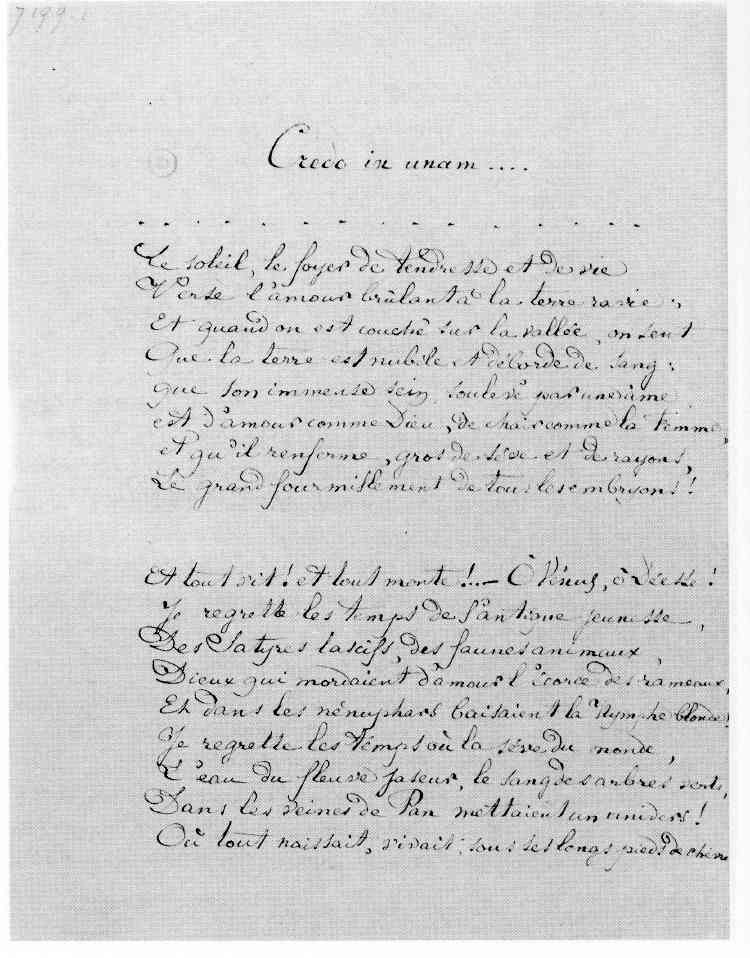 7199.1
Credo in unam ....
. . . . . . . . . . . . . . . . . .
Le soleil, le foyer de tendresse et de vie
Verse l'amour brûlant à la terre ravie ;
Et quand on est couché sur la vallée, on sent
Que la terre est nubile et déborde de sang ;
que son immense sein, soulevé par une âme
est d'amour comme Dieu, de chair comme la femme,
et qu'il renferme, gros de sève et de rayons,
Le grand fourmillement de tous les embryons !
Et tout vit ! et tout monte !... — Ô Vénus, ô Déesse !
Je regrette les temps de l'antique jeunesse,
Des Satyres lascifs, des faunes animaux,
Dieux qui mordaient d'amour l'écorce des rameaux,
Et dans les nénuphars baisaient la Nymphe blonde !
Je regrette les temps où la sève du monde,
L'eau du fleuve jaseur, le sang des arbres verts,
Dans les veines de Pan mettaient un univers !
Où tout naissait, vivait, sous ses longs pieds de chèvre